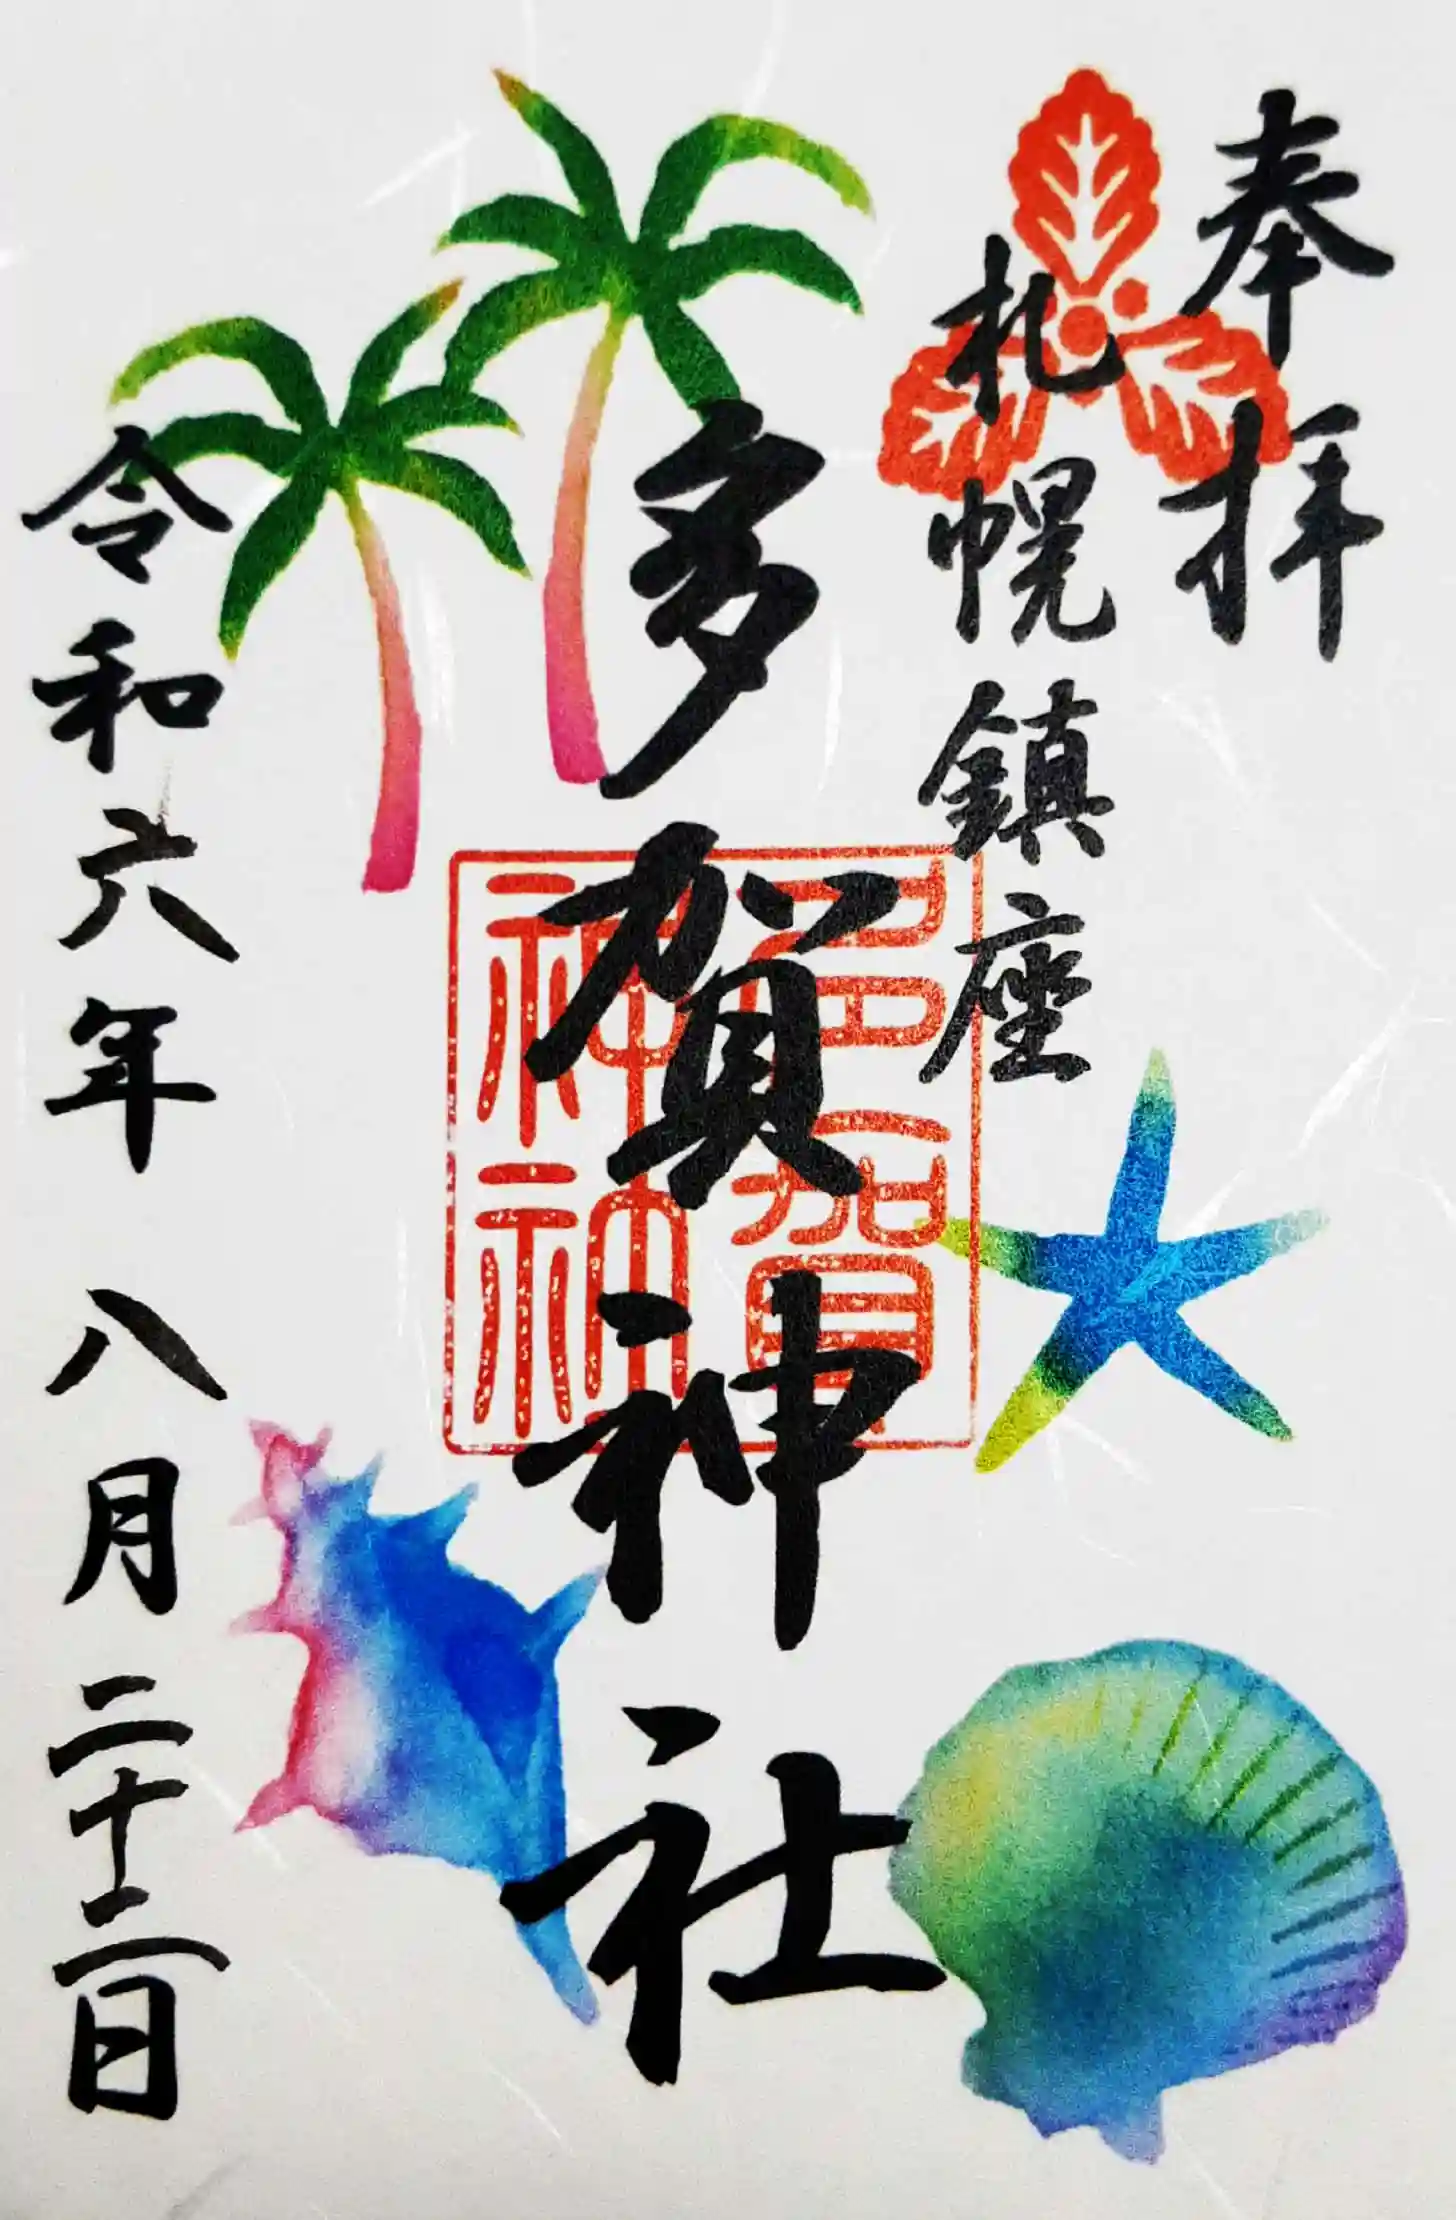 奉拝
札幌鎮座
多賀神社
令和六年 八月 二十二日
多賀
神